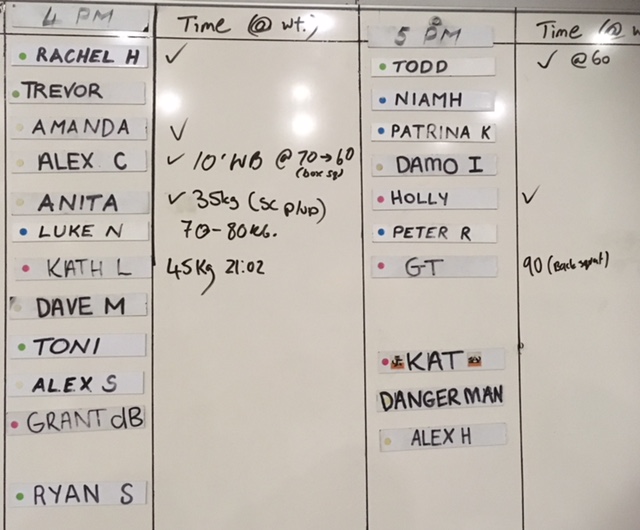 4 PM Time (@ wt.)
RACHEL H ✓
TREVOR
AMANDA ✓
ALEX C ✓ 10' WB @ 70→60
(box sq)
ANITA ✓ 35kg (sc p/up)
LUKE N 70-80kg.
KATH L 45Kg 21:02
DAVE M
TONI
ALEX S
GRANT dB
RYAN S
5 PM Time (@ w
TODD ✓ @60
NIAMH
PATRINA K
DAMO I
HOLLY ✓
PETER R
GT 90 (Back squat)
KAT
DANGERMAN
ALEX H